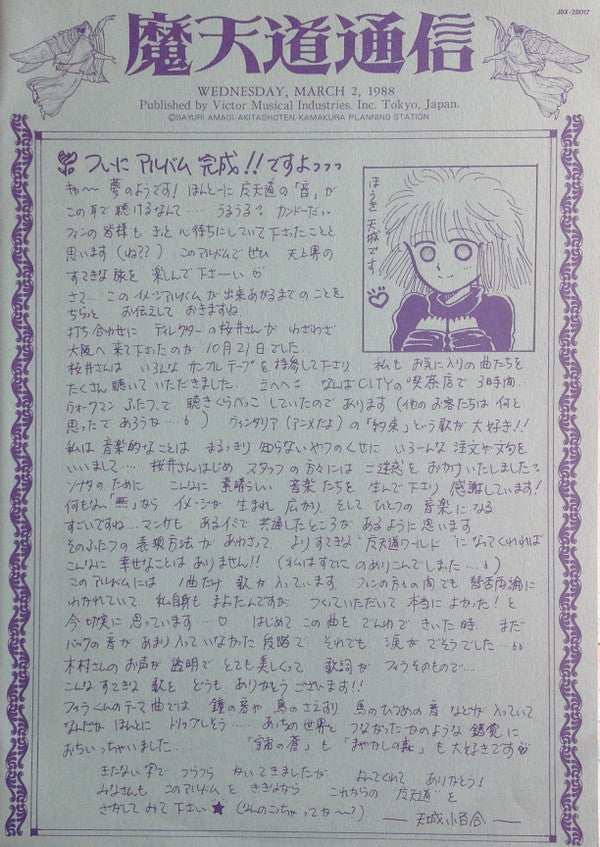 JBX-28017
魔天道通信
WEDNESDAY, MARCH 2, 1988
Published by Victor Musical Industries. Inc. Tokyo, Japan.
©SAYURI AMAGI/AKITASHOTEN, KAMAKURA PLANNING STATION
ついに アルバム 完成!!ですよっっっ
キャ〜〜 夢のようです! ほんとーに 魔天道の「音」が
この耳で聴けるなんて… うるうる カンドーだっ
ファンの皆様も きっと 心待ちにしていて下さったことと
思います(ね??) このアルバムで ぜひ 天上界の
すてきな旅を 楽しんで下さーい
さて… このイメージアルバムが出来あがるまでのことを
ちらっと お伝えして おきますね
打ち合わせに ディレクターの桜井さんが わざわざ
大阪へ来て下さったのが 10月21日でした
桜井さんは いろんな サンプルテープを持参して下さり 私も お気に入りの曲たちを
たくさん聴いて いただきました。 なんばCITYの喫茶店で 3時間
ウォークマン ふたつで 聴きくらべっこ していたのであります(他のお客たちは何と
思ったであろうか…) ウィンダリア(アニメだよ)の「約束」という歌が大好き!!
私は 音楽的なことは まるっきり 知らないやつのくせに いろーんな 注文や文句を
いいまして… 桜井さんはじめ スタッフの方々には ご迷惑を おかけいたしました
ソナタのために こんなに 素晴らしい 音楽たちを 生んで下さり 感謝しています!
何もない「無」から イメージが 生まれ 広がり そして ひとつの 音楽に なる
すごいですね… マンガも あるイミで 共通したところが あるように思います
そのふたつの 表現方法が あわさって よりすてきな"魔天道ワールド"になってくれれば
こんなに 幸せなことは ありません!! (私はすでに のめりこんでしまった…)
このアルバムには 1曲だけ 歌が入っています ファンの方々の間でも 賛否両論に
わかれていて 私自身も まよったんですが つくっていただいて 本当に よかった!と
今 切実に 思っています…♡ はじめて この曲を でんわで きいた時 まだ
バックの音が あまり入っていなかった段階で それでも 涙が でそうでした…
木村さんのお声が 透明で とても美しくって 歌詞が フィラそのもので…
こんなすてきな 歌を どうも ありがとう ございます!!
フィラくんのテーマ曲では 鐘の音や 鳥のさえずり 馬のひづめの音 などが入っていて
なんだか ほんとに トリップしそう… あっちの世界と つながったかのような 錯覚に
おちいっちゃいました… 「宇宙の蒼」も「まやかしの森」も大好きです
きたない字で つらつら かいてきましたが よんでくれて ありがとう!
みなさんも このアルバムを ききながら これからの"魔天道"を
さがしてみて下さい★(なんのこっちゃってか〜?)
天城小百合
ほうき 天城です